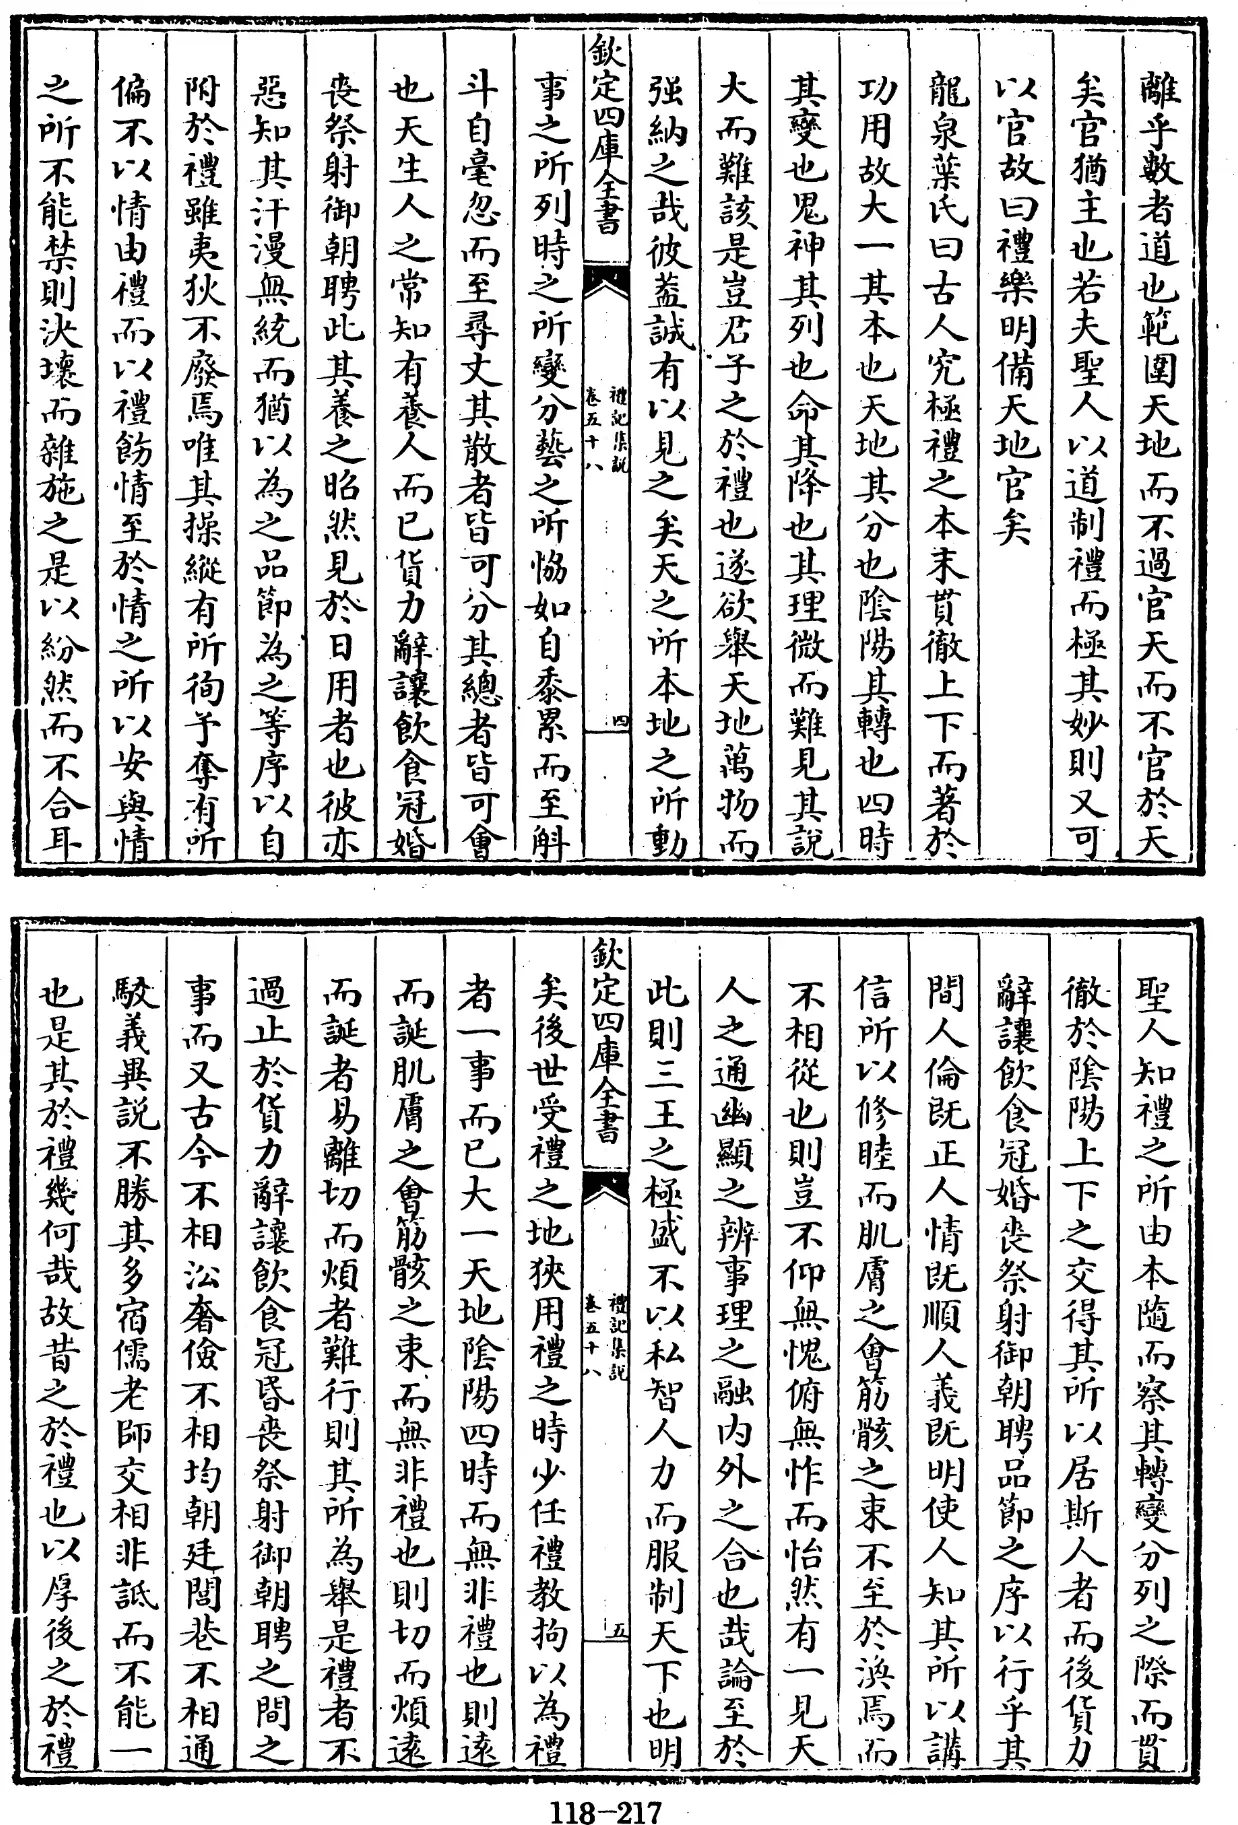 離乎數者道也範圍天地而不過官天而不官於天
矣官猶主也若夫聖人以道制禮而極其妙則又可
以官故曰禮樂明備天地官矣
龍泉葉氏曰古人究極禮之本末貫徹上下而著於
功用故大一其本也天地其分也陰陽其轉也四時
其變也鬼神其列也命其降也其理微而難見其說
大而難該是豈君子之於禮也遂欲舉天地萬物而
强納之哉彼蓋誠有以見之矣天之所本地之所動
欽定四庫全書
禮記集說
卷五十八
四
事之所列時之所變分藝之所恊如自黍累而至斛
斗自毫忽而至尋丈其散者皆可分其總者皆可會
也天生人之常知有養人而已貨力辭讓飲食冠婚
喪祭射御朝聘此其養之昭然見於日用者也彼亦
惡知其汗漫無統而猶以為之品節為之等序以自
附於禮雖夷狄不廢焉唯其操縱有所徇予奪有所
偏不以情由禮而以禮飭情至於情之所以安與情
之所不能禁則決壞而雜施之是以紛然而不合耳
聖人知禮之所由本隨而察其轉變分列之際而貫
徹於陰陽上下之交得其所以居斯人者而後貨力
辭讓飲食冠婚喪祭射御朝聘品節之序以行乎其
間人倫既正人情既順人義既明使人知其所以講
信所以修睦而肌膚之會筋骸之束不至於渙焉而
不相從也則豈不仰無愧俯無怍而怡然有一見天
人之通幽顯之辨事理之融内外之合也哉論至於
此則三王之極盛不以私智人力而服制天下也明
欽定四庫全書
禮記集說
卷五十八
五
矣後世受禮之地狹用禮之時少任禮教拘以為禮
者一事而已大一天地陰陽四時而無非禮也則遠
而誕肌膚之會筋骸之束而無非禮也則切而煩遠
而誕者易離切而煩者難行則其所為舉是禮者不
過止於貨力辭讓飲食冠昏喪祭射御朝聘之間之
事而又古今不相沿奢儉不相均朝廷閭巷不相通
駮義異說不勝其多宿儒老師交相非詆而不能一
也是其於禮幾何哉故昔之於禮也以厚後之於禮
118-217